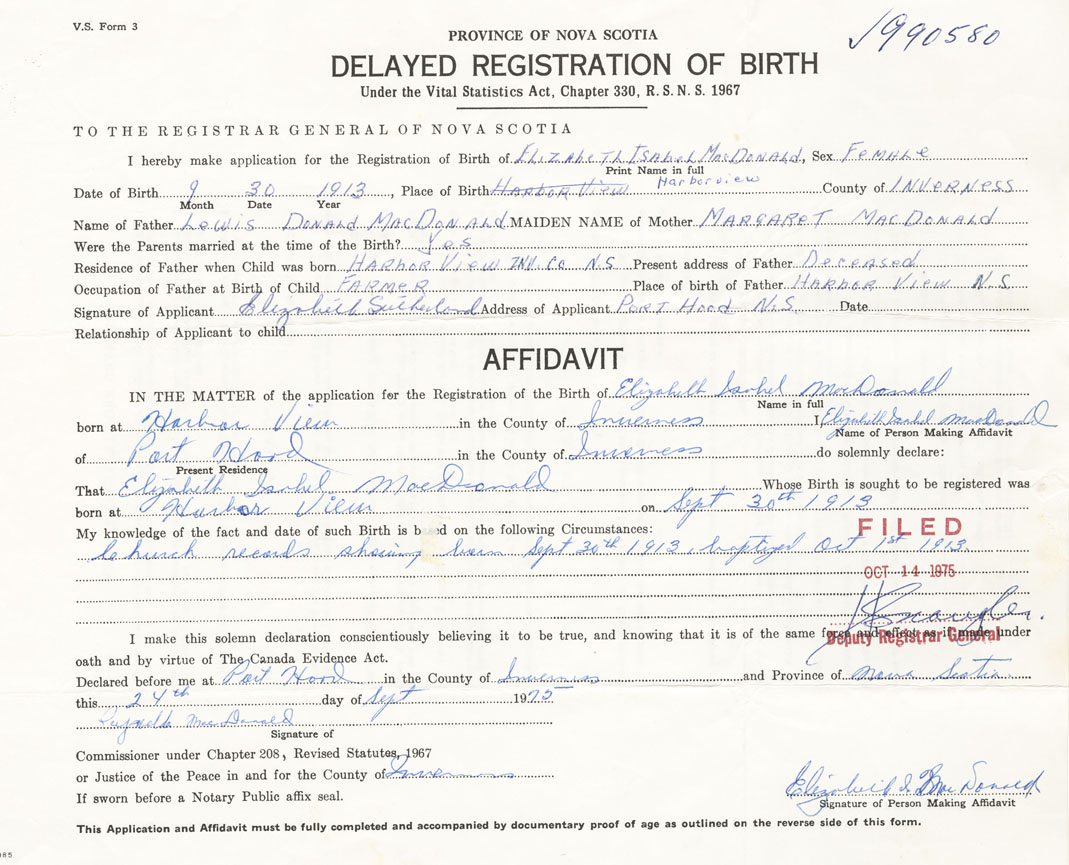 V.S. Form 3
PROVINCE OF NOVA SCOTIA
1990580
DELAYED REGISTRATION OF BIRTH
Under the Vital Statistics Act, Chapter 330, R.S.N.S. 1967
TO THE REGISTRAR GENERAL OF NOVA SCOTIA
I hereby make application for the Registration of Birth of ELIZABETH ISABEL MACDONALD, Sex FEMALE
Print Name in full
Date of Birth 9 30 1913, Place of Birth HARBOR VIEW Harborview County of INVERNESS
Month Date Year
Name of Father LEWIS DONALD MACDONALD MAIDEN NAME of Mother MARGARET MACDONALD
Were the Parents married at the time of the Birth? Yes
Residence of Father when Child was born HARBOR VIEW INV. CO N.S Present address of Father DECEASED
Occupation of Father at Birth of Child FARMER Place of birth of Father HARBOR VIEW N.S
Signature of Applicant Elizabeth Sutherland Address of Applicant PORT HOOD N.S. Date
Relationship of Applicant to child
AFFIDAVIT
IN THE MATTER of the application for the Registration of the Birth of Elizabeth Isabel MacDonald
Name in full
born at Harbor View in the County of Inverness I Elizabeth Isabel MacDonald
Name of Person Making Affidavit
of Port Hood in the County of Inverness do solemnly declare:
Present Residence
That Elizabeth Isabel MacDonald Whose Birth is sought to be registered was
born at Harbor View on Sept 30th 1913
My knowledge of the fact and date of such Birth is based on the following Circumstances:
FILED
Church records showing born Sept 30th 1913, baptized Oct 1st 1913.
OCT 14 1975
I make this solemn declaration conscientiously believing it to be true, and knowing that it is of the same force and effect as if made under
Deputy Registrar General
oath and by virtue of The Canada Evidence Act.
Declared before me at Port Hood in the County of Inverness and Province of Nova Scotia
this 24th day of Sept 1975
MacDonald
Signature of
Commissioner under Chapter 208, Revised Statutes, 1967
or Justice of the Peace in and for the County of Inverness
If sworn before a Notary Public affix seal.
Elizabeth I. MacDonald
Signature of Person Making Affidavit
This Application and Affidavit must be fully completed and accompanied by documentary proof of age as outlined on the reverse side of this form.